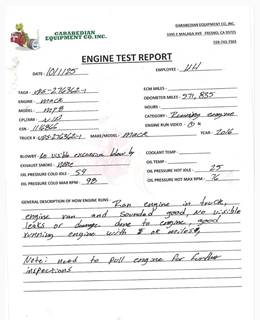 GARABEDIAN EQUIPMENT CO, INC.
GARABEDIAN
EQUIPMENT CO, INC.
ENGINE TEST REPORT
DATE: 10/1/25
EMPLOYEE: HH
TAG#
ECM MILES:
ENGINE: Mack
ODOMETER MILES: 571,885
MODEL: MP8
HOURS:
CPL/ARR: N/A
CATEGORY: Running engine
ESN: 1116866
ENGINE RUN VIDEO: Y N
TRUCK #
MAKE/MODEL: Mack
YEAR: 2016
BLOWBY: no visible excessive blow by
COOLANT TEMP:
EXHAUST SMOKE: none
OIL TEMP:
OIL PRESSURE COLD IDLE: 59
OIL PRESSURE HOT IDLE: 25
OIL PRESSURE COLD MAX RPM: 98
OIL PRESSURE HOT MAX RPM: 76
GENERAL DESCRIPTION OF HOW ENGINE RUNS: Ran engine in truck,
engine ran and sounded good, no visible
leaks or damage done to engine, good
running engine with ok
Note: need to pull engine for further
inspections